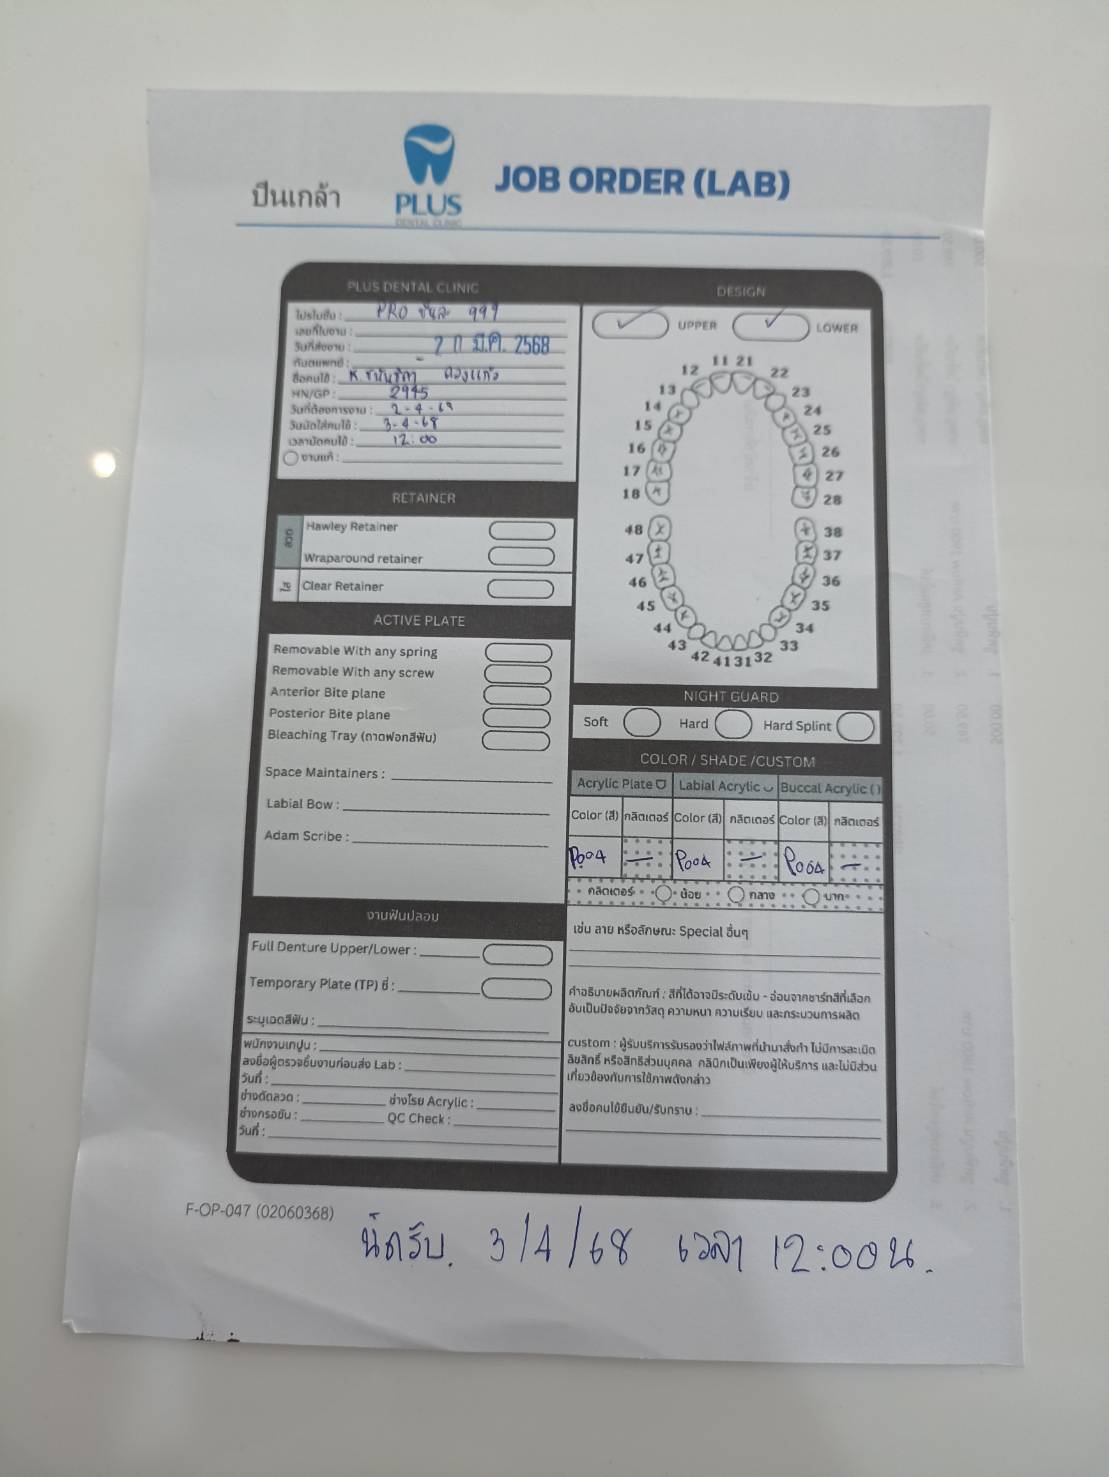 ปิ่นเกล้า
PLUS
DENTAL CLINIC
JOB ORDER (LAB)
PLUS DENTAL CLINIC
โปรโมชั่น : PRO ชิ้นละ 999
เลขที่ใบงาน :
วันที่ส่งงาน : 20 มี.ค. 2568
ทันตแพทย์ :
ชื่อคนไข้ :
HN/GP : 2945
วันที่ต้องการงาน : 2-4-68
วันนัดใส่คนไข้ : 3-4-68
เวลานัดคนไข้ : 12:00
งานแก้ :
RETAINER
ลวด
Hawley Retainer
Wraparound retainer
ใส
Clear Retainer
ACTIVE PLATE
Removable With any spring
Removable With any screw
Anterior Bite plane
Posterior Bite plane
Bleaching Tray (ถาดฟอกสีฟัน)
Space Maintainers :
Labial Bow :
Adam Scribe :
งานฟันปลอม
Full Denture Upper/Lower :
Temporary Plate (TP) ซี่ :
ระบุเฉดสีฟัน :
พนักงานเคาน์เตอร์ :
ลงชื่อผู้ตรวจชิ้นงานก่อนส่ง Lab :
วันที่ :
ช่างดัดลวด : ช่างโรย Acrylic :
ช่างกรอขัด : QC Check :
วันที่ :
DESIGN
UPPER LOWER
11 21
12 22
13 23
14 24
15 25
16 26
17 27
18 28
48 38
47 37
46 36
45 35
44 34
43 33
42 41 31 32
NIGHT GUARD
Soft Hard Hard Splint
COLOR / SHADE /CUSTOM
Acrylic Plate Labial Acrylic Buccal Acrylic ( )
Color (สี) กลิตเตอร์ Color (สี) กลิตเตอร์ Color (สี) กลิตเตอร์
P004 — P004 — P004 —
กลิตเตอร์ น้อย กลาง มาก
เช่น ลาย หรือลักษณะ Special อื่นๆ
คำอธิบายผลิตภัณฑ์ : สีที่ได้อาจมีระดับเข้ม - อ่อนจากชาร์ทสีที่เลือก
อันเป็นปัจจัยจากวัสดุ ความหนา ความเรียบ และกระบวนการผลิต
custom : ผู้รับบริการรับรองว่าไฟล์ภาพที่นำมาสั่งทำ ไม่มีการละเมิด
ลิขสิทธิ์ หรือสิทธิส่วนบุคคล คลินิกเป็นเพียงผู้ให้บริการ และไม่มีส่วน
เกี่ยวข้องกับการใช้ภาพดังกล่าว
ลงชื่อคนไข้ยืนยัน/รับทราบ :
F-OP-047 (02060368)
นัดรับ. 3/4/68 เวลา 12:00น.